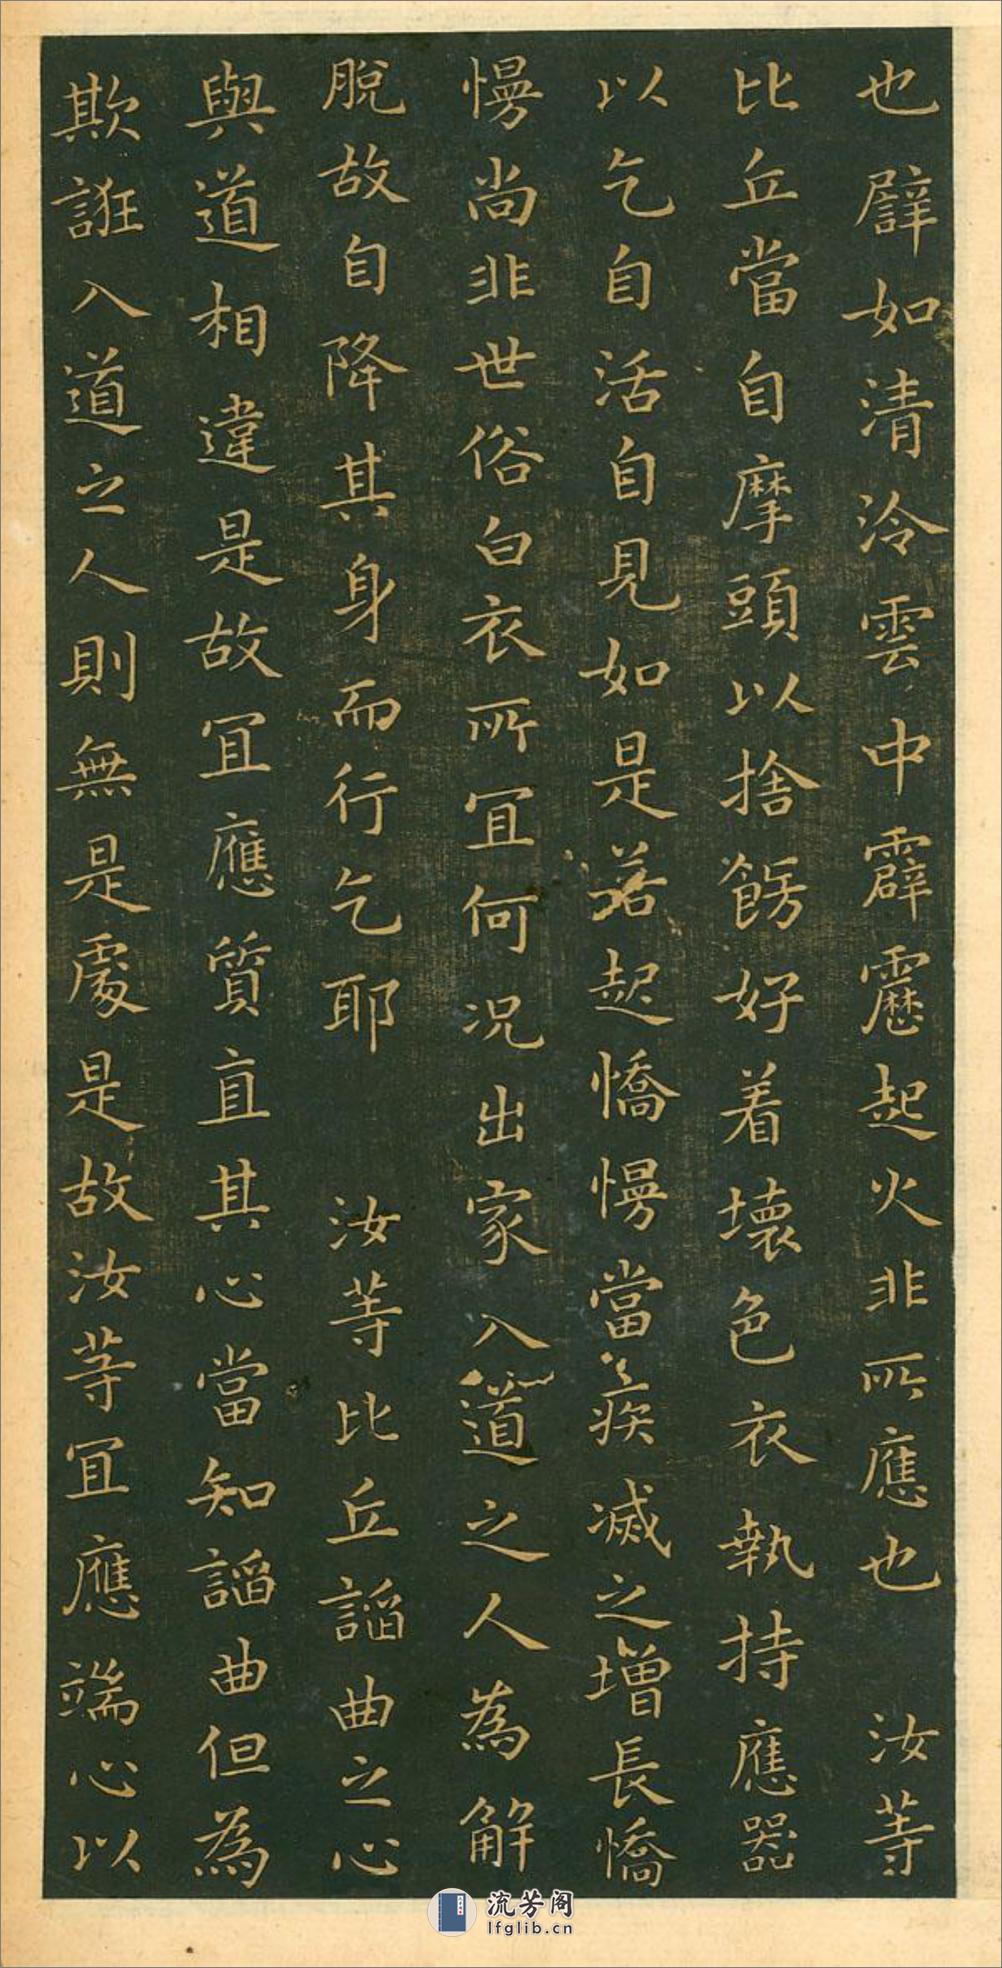 也譬如清泠雲中霹靂起火非所應也　汝等
比丘當自摩頭以捨餝好着壞色衣執持應器
以乞自活自見如是若起憍慢當疾滅之增長憍
慢尚非世俗白衣所冝何況出家入道之人為解
脫故自降其身而行乞耶　汝等比丘謟曲之心
與道相違是故冝應質直其心當知謟曲但為
欺誑入道之人則無是處是故汝等冝應端心以
流芳阁
lfglib.cn